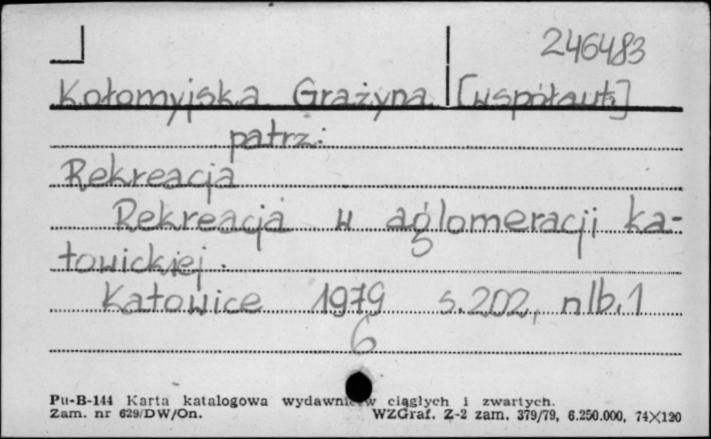 246483
Kołomyjska Grażyna [współaut.]
patrz:
Rekreacja
Rekreacja w aglomeracji ka-
towickiej.
Katowice 1979 s. 202, nlb. 1
6
Pu-B-144 Karta katalogowa wydawnictw ciągłych i zwartych.
Zam. nr 629/DW/On. WZGraf. Z-2 zam. 379/79, 6.250.000, 74×120